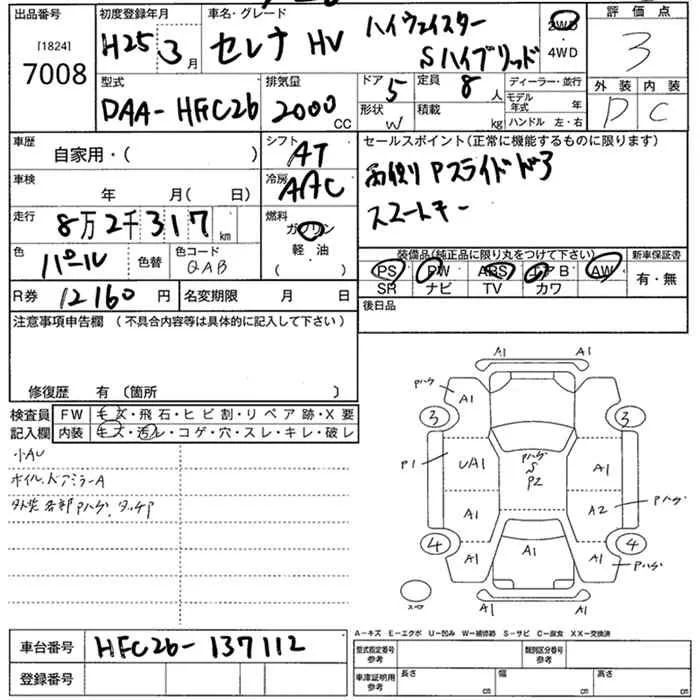 出品番号 初度登録年月 車名・グレード ハイウェイスター 2WD 評価点
[1824] H25 3月 セレナ HV Sハイブリッド 4WD 3
7008
型式 排気量 ドア 5 定員 8人 ディーラー・並行 外装 内装
DAA-HFC26 2000cc 形状 W 積載 kg モデル年式 年 D C
ハンドル 左・右
車歴 シフト セールスポイント(正常に機能するものに限ります)
自家用・( ) AT 両側Pスライドドア
車検 冷房 スマートキー
年 月( 日) AAC
走行 8万2千317km 燃料 ガソリン
軽油
( )
色 パール 色替 色コード QAB
装備品(純正品に限り丸をつけて下さい) 新車保証書
PS PW ABS エアB AW 有・無
SR ナビ TV カワ
R券 12160円 名変期限 月 日 後日品
注意事項申告欄 (不具合内容等は具体的に記入して下さい)
修復歴 有 〔箇所 〕
検査員 FW キズ・飛石・ヒビ割・リペア跡・X要
記入欄 内装 キズ・汚レ・コゲ・穴・スレ・キレ・破レ
ホイル、ドアミラーA
外装各部Pハゲ、タッチP
A1 A1
Pハゲ
A1
3 3
P1 UA1 Pハゲ
S
P2 A1
A1 A2 Pハゲ
4 4
A1 A1 A1 Pハゲ
スペア A1 A1
A-キズ E-エクボ U-凹み W-補修跡 S-サビ C-腐食 XX-交換済
車台番号 HFC26-137112 型式指定番号 参考 類別区分番号 参考
登録番号 車庫証明用 参考 長さ cm 幅 cm 高さ cm